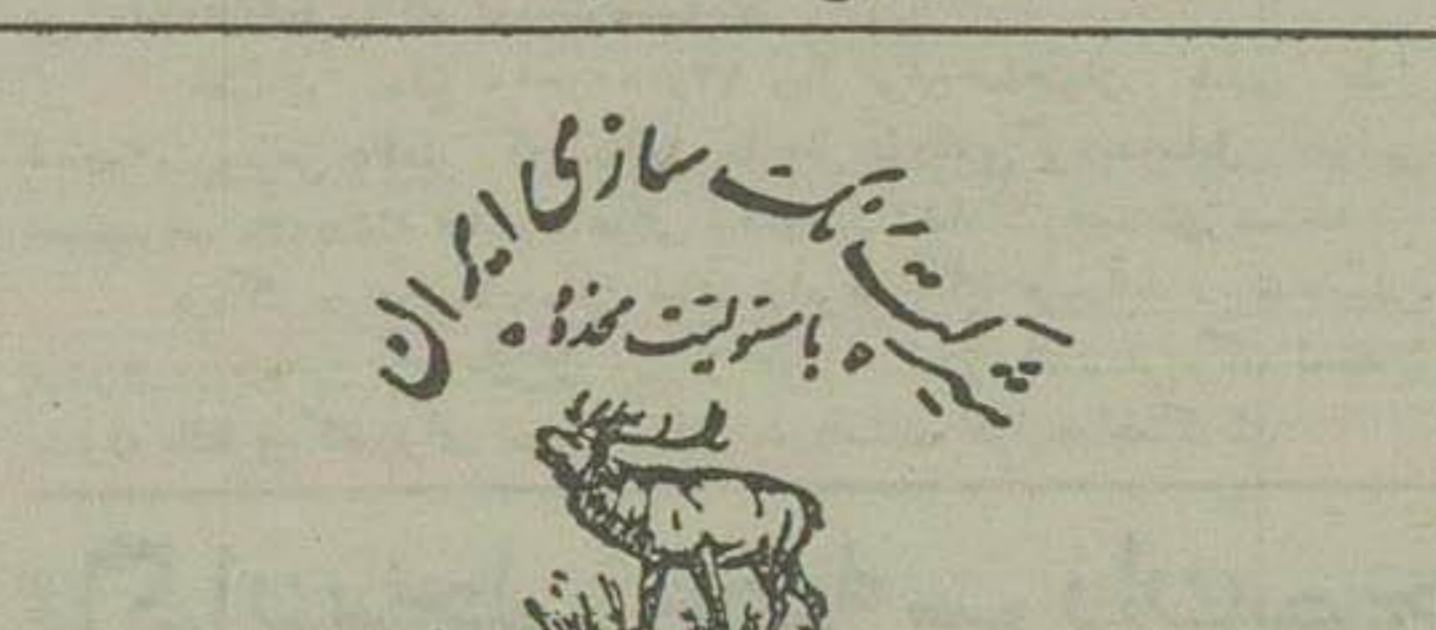 شرکت سازی ایران
با مسئولیت محدود